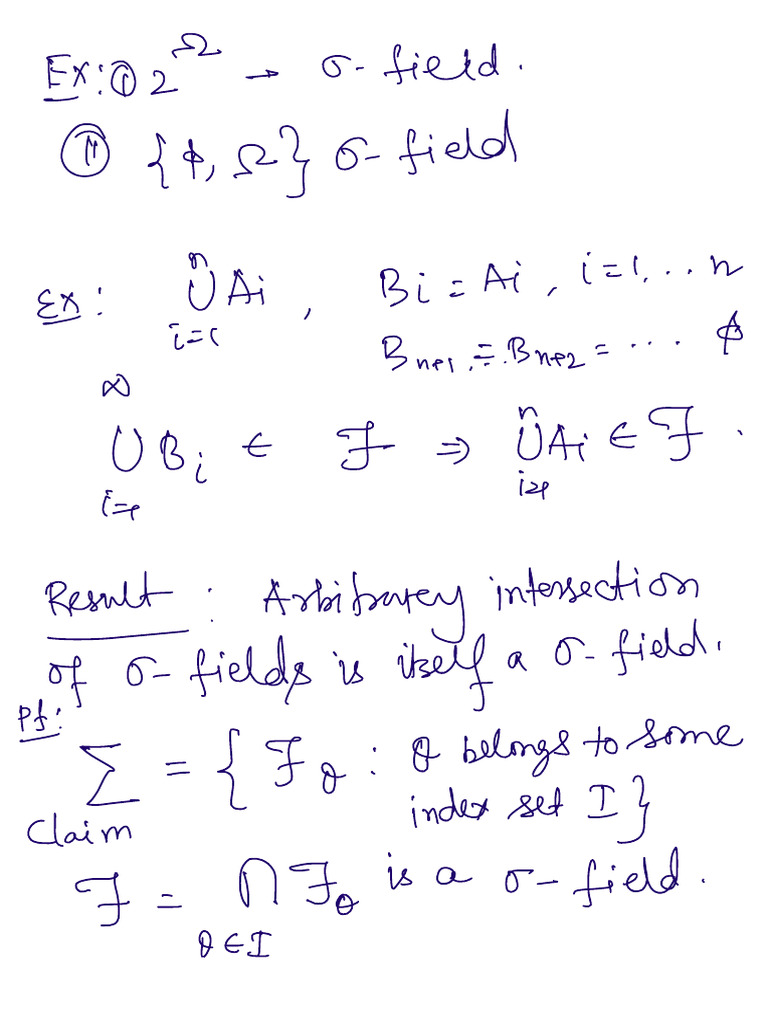 Ex: ① 2^Ω → σ-field.
(ii) {ϕ, Ω} σ-field
Ex: n⋃i=1 Ai , Bi = Ai , i=1, .. n
Bn+1, =.Bn+2 = ... ϕ
∞⋃i=1 Bi ∈ ℱ ⇒ n⋃i=1 Ai ∈ ℱ .
Result : Arbitrary intersection
of σ-fields is itself a σ-field.
Pf:
Σ = { ℱθ : θ belongs to some
index set I }
Claim
ℱ = ⋂θ∈I ℱθ is a σ-field.